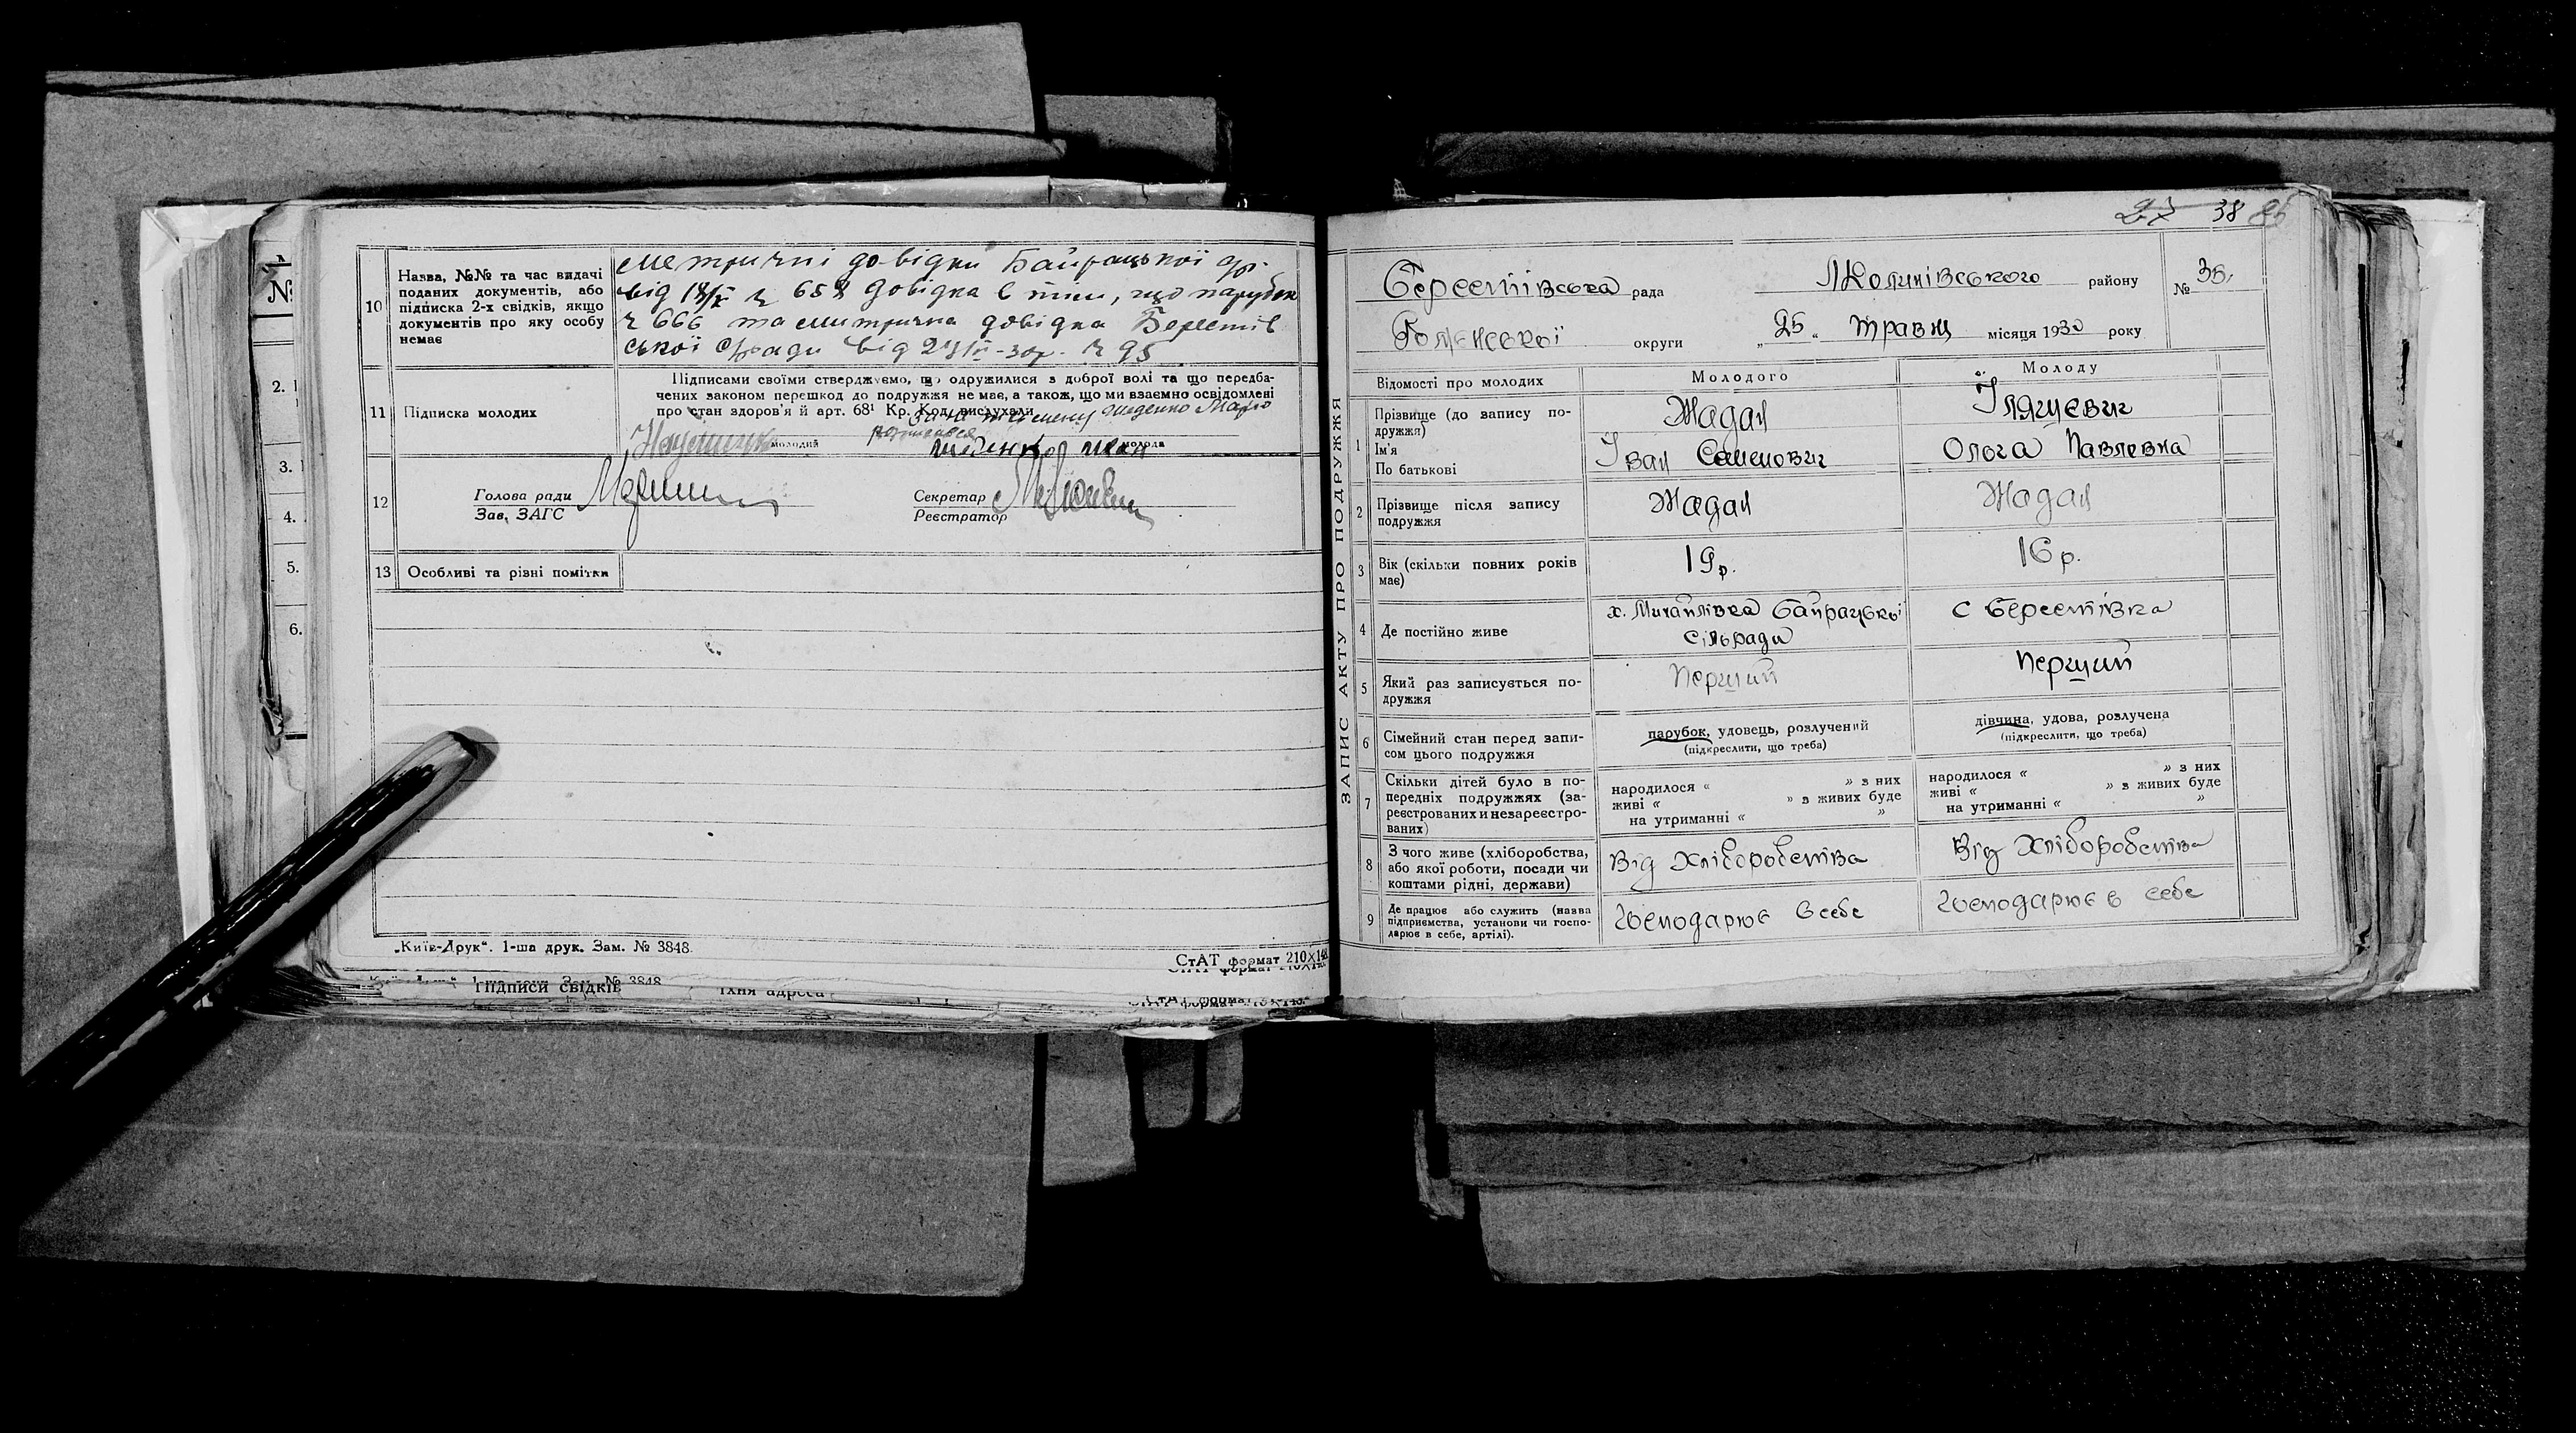 10
Назва, №№ та час видачі
поданих документів, або
підписка 2-х свідків, якщо
документів про яку особу
немає
метричні довідки Байрацької
від 658 довідка в тім, що парубок
ч 666 та метрична довідка Берестів
ської с/ради від ч 95
11
Підписка молодих
Підписами своїми стверджуємо, що одружилися з доброї волі та що передба-
чених законом перешкод до подружжя не має, а також, що ми взаємно освідомлені
про стан здоров'я й арт. 68¹ Кр. Код. вислухали
молодий
молода
12
Голова ради
Зав. ЗАГС
Секретар
Реєстратор
13
Особливі та різні помітки
„Київ-Друк“. 1-ша друк. Зам. № 3848.
СтАТ формат 210×148
Підписи свідків
їхня адреса
№
2.
3.
4.
5.
6.
27 38
Берестівська рада
району
№ 35
округи
„ 25 “ травня місяця 1930 року
ЗАПИС АКТУ ПРО ПОДРУЖЖЯ
Відомості про молодих
Молодого
Молоду
1
Прізвище (до запису по-
дружжя)
Ім'я
По батькові
Жадан
Іван Семенович
Ольга Павлевна
2
Прізвище після запису
подружжя
Жадан
Жадан
3
Вік (скільки повних років
має)
19 р.
16 р.
4
Де постійно живе
х. Михайлівка Байрацької
сільради
с Берестівка
5
Який раз записується по-
дружжя
Перший
Перший
6
Сімейний стан перед запи-
сом цього подружжя
парубок, удовець, розлучений
(підкреслити, що треба)
дівчина, удова, розлучена
(підкреслити, що треба)
7
Скільки дітей було в по-
передніх подружжях (за-
реєстрованих и незареєстро-
ваних)
народилося « » з них
живі « » з живих буде
на утриманні « »
народилося « » з них
живі « » з живих буде
на утриманні « »
8
З чого живе (хліборобства,
або якої роботи, посади чи
коштами рідні, держави)
Від Хліборобства
Від Хліборобства
9
Де працює або служить (назва
підприємства, установи чи госпо-
дарює в себе, артілі).
Господарює в себе
Господарює в себе